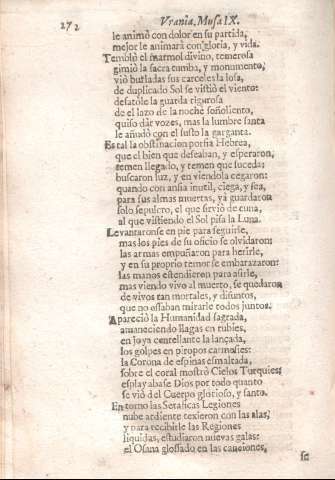 272
Vrania. Musa IX.
le animò con dolor en su partida,
mejor le animarà con gloria, y vida.
Temblò el marmol divino, temerosa
gimiò la sacra tumba, y monumento,
viò burladas sus carceles la losa,
de duplicado Sol se vistiò el viento:
desatòse la guarda rigurosa
de el lazo de la noche soñoliento,
quiso dàr vozes, mas la lumbre santa
le añudò con el susto la garganta.
Es tal la obstinacion porfia Hebrea,
que el bien que deseaban, y esperaron,
temen llegado, y temen que suceda:
buscaron luz, y en viendola cegaron:
quando con ansia inutil, ciega, y fea,
para sus almas muertas, yà guardaron
solo sepulcro, el que sirviò de cuna,
al que vistiendo el Sol pisa la Luna.
Levantaronse en pie para seguirle,
mas los pies de su oficio se olvidaron:
las armas empuñaron para herirle,
y en su proprio temor se embarazaron:
las manos estendieron para asirle,
mas viendo vivo al muerto, se quedaron
de vivos tan mortales, y difuntos,
que no ossaban mirarle todos juntos.
Apareciò la Humanidad sagrada,
amaneciendo llagas en rubies,
en joya centellante la lançada,
los golpes en piropos carmesies:
la Corona de espinas esmaltada,
sobre el coral mostrò Cielos Turquies:
esplayabase Dios por todo quanto
se viò del Cuerpo glorioso, y santo.
En torno las Seraficas Legiones
nube ardiente texieron con las alas,
y para recibirle las Regiones
liquidas, estudiaron nuevas galas:
el Osana glossado en las canciones,
se